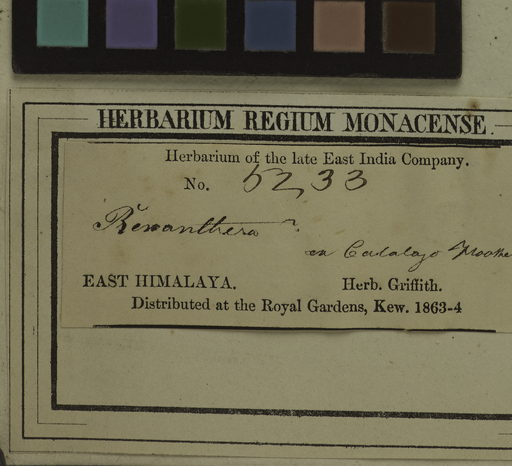 HERBARIUM REGIUM MONACENSE.
Herbarium of the late East India Company.
No. 5233
Renanthera ?
ex Catalogo Hooke
EAST HIMALAYA. Herb. Griffith.
Distributed at the Royal Gardens, Kew. 1863-4